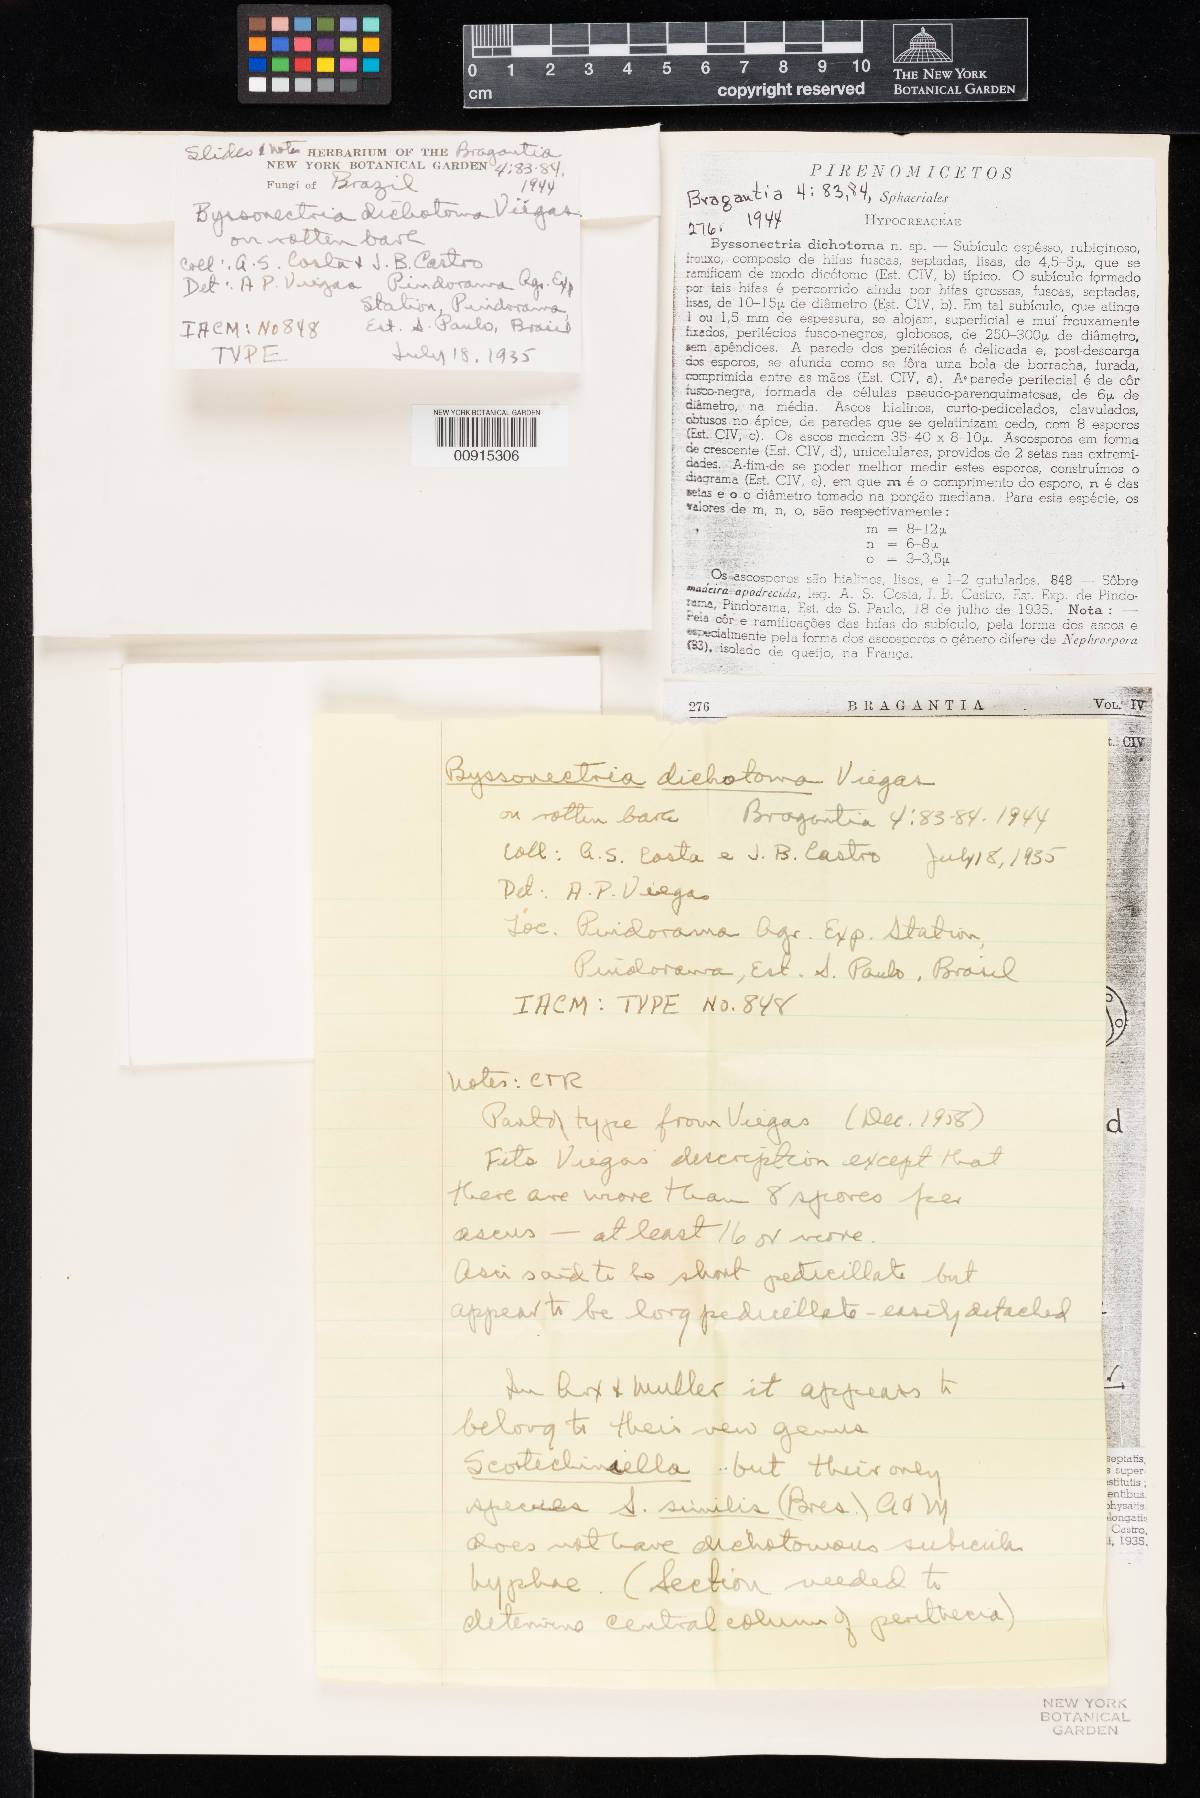 0 1 2 3 4 5 6 7 8 9 10
cm
copyright reserved
THE NEW YORK
BOTANICAL GARDEN
Slides & notes HERBARIUM OF THE Bragantia
NEW YORK BOTANICAL GARDEN 4:83-84.
1944
Fungi of Brazil
Byssonectria dichotoma Viégas
on rotten bark
Coll.: A.S. Costa & J.B. Castro
Det.: A P. Viegas Pindorama Agr. Exp
Station, Pindorama,
IACM: No 848 Est. S. Paulo, Brasil
TYPE July 18, 1935
NEW YORK BOTANICAL GARDEN
00915306
PIRENOMICETOS
Bragantia 4: 83,84, Sphaeriales
1944 HYPOCREACEAE
276.
Byssonectria dichotoma n. sp. — Subículo espêsso, rubiginoso,
frouxo, composto de hifas fuscas, septadas, lisas, de 4,5-5µ, que se
ramificam de modo dicótomo (Est. CIV, b) típico. O subículo formado
por tais hifas é percorrido ainda por hifas grossas, fuscas, septadas,
lisas, de 10-15µ de diâmetro (Est. CIV, b). Em tal subículo, que atinge
1 ou 1,5 mm de espessura, se alojam, superficial e mui frouxamente
fixados, peritécios fusco-negros, globosos, de 250-300µ de diâmetro,
sem apêndices. A parede dos peritécios é delicada e, post-descarga
dos esporos, se afunda como se fôra uma bola de borracha, furada,
comprimida entre as mãos (Est. CIV, a). A parede peritecial é de côr
fusco-negra, formada de células pseudo-parenquimatosas, de 6µ de
diâmetro, na média. Ascos hialinos, curto-pedicelados, clavulados,
obtusos no ápice, de paredes que se gelatinizam cedo, com 8 esporos
(Est. CIV, c). Os ascos medem 35-40 x 8-10µ. Ascosporos em forma
de crescente (Est. CIV, d), unicelulares, providos de 2 setas nas extremi-
dades. A-fim-de se poder melhor medir estes esporos, construímos o
diagrama (Est. CIV, e), em que m é o comprimento do esporo, n é das
setas e o o diâmetro tomado na porção mediana. Para esta espécie, os
valores de m, n, o, são respectivamente:
m = 8-12µ
n = 6-8µ
o = 3-3,5µ
Os ascosporos são hialinos, lisos, e 1-2 gutulados. 848 — Sôbre
madeira apodrecida, leg. A. S. Costa, J. B. Castro, Est. Exp. de Pindo-
rama, Pindorama, Est. de S. Paulo, 18 de julho de 1935. Nota: —
Pela côr e ramificações das hifas do subículo, pela forma dos ascos e
especialmente pela forma dos ascosporos o gênero difere de Nephrospora
(93), isolado de queijo, na França.
276 BRAGANTIA VOL. IV
t. CIV
Byssonectria dichotoma Viegas
on rotten bark Bragantia 4:83-84. 1944
Coll: A.S. Costa e J.B. Castro July 18, 1935
Det.: A.P. Viegas
Loc. Pindorama Agr. Exp. Station,
Pindorama, Est. S. Paulo, Brasil
IACM: TYPE No. 848
Notes: CTR
Part of type from Viegas (Dec. 1958)
Fits Viegas' description except that
there are more than 8 spores per
ascus — at least 16 or more.
Asci said to be short pedicillate but
appear to be long pedicellate - easily detached
In Arx & Muller it appears to
belong to their new genus
Scortechiniella but their only
species S. similis (Bres.) A & M
does not have dichotomous subicular
hyphae. (Section needed to
determine central column of perithecia)
d
septatis,
super-
stitutis;
entibus
physatis
longatis
Castro,
i, 1935.
NEW YORK
BOTANICAL
GARDEN